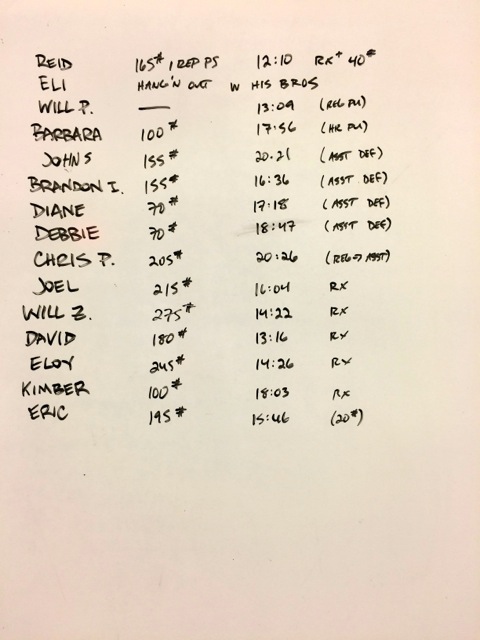 REID 165# 1 REP PS 12:10 RX+ 40#
ELI HANG'N OUT W HIS BROS
WILL P. — 13:09 (REG PU)
BARBARA 100# 17:56 (HR PU)
JOHN S 155# 20:21 (ASST DEF)
BRANDON I. 155# 16:36 (ASST DEF)
DIANE 70# 17:18 (ASST DEF)
DEBBIE 70# 18:47 (ASST DEF)
CHRIS P. 205# 20:26 (REG → ASST)
JOEL 215# 16:04 RX
WILL Z. 275# 14:22 RX
DAVID 180# 13:16 RX
ELOY 245# 14:26 RX
KIMBER 100# 18:03 RX
ERIC 195# 15:46 (20#)